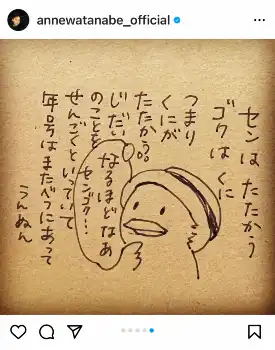 annewatanabe_official
センはたたかう
ゴクはくに
つまり
くにが
たたかう。。
じだい
のことを
せんごくといっていて
年号はまたべつにあって
うんぬん
なるほどなあ
センゴク…